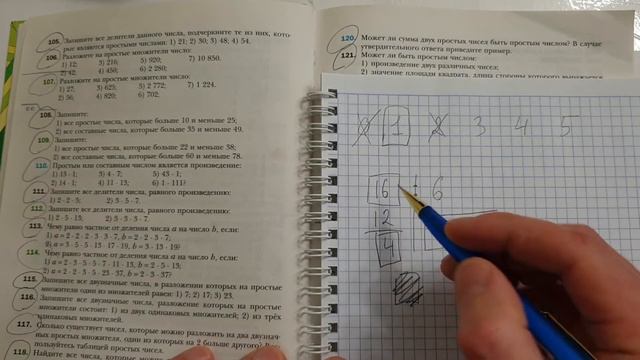 105. Запишите все делители данного числа, подчеркните те из них, кото-
рые являются простыми числами: 1) 21; 2) 30; 3) 48; 4) 54.
106. Разложите на простые множители число:
1) 12; 3) 216; 5) 920; 7) 10 850.
2) 42; 4) 450; 6) 2 280;
107. Разложите на простые множители число:
1) 27; 3) 625; 5) 2 772; 7) 1 224.
2) 56; 4) 820; 6) 702;
108. Запишите:
1) все простые числа, которые больше 10 и меньше 25;
2) все составные числа, которые больше 35 и меньше 49.
109. Запишите:
1) все простые числа, которые больше 22 и меньше 38;
2) все составные числа, которые больше 60 и меньше 78.
110. Простым или составным числом является произведение:
1) 13 · 1; 3) 4 · 7; 5) 43 · 1;
2) 14 · 1; 4) 11 · 13; 6) 1 · 111?
111. Запишите все делители числа, равного произведению:
1) 2 · 2 · 3; 2) 3 · 5 · 7.
112. Запишите все делители числа, равного произведению:
1) 2 · 5 · 13; 2) 3 · 3 · 3 · 7.
113. Чему равно частное от деления числа a на число b, если:
1) a = 2 · 2 · 2 · 3 · 3 · 7, b = 2 · 2 · 3 · 7;
2) a = 3 · 5 · 5 · 13 · 17 · 19, b = 3 · 13 · 19?
114. Чему равно частное от деления числа a на число b, если:
1) a = 2 · 3 · 5 · 5 · 7 · 11 · 13, b = 2 · 5 · 13;
2) a = 2 · 2 · 3 · 5 · 23 · 37, b = 2 · 3 · 37?
115. Запишите все двузначные числа, в разложении которых на простые
множители один из множителей равен: 1) 7; 2) 17; 3) 23.
116. Запишите все двузначные числа, разложение которых на простые
множители состоит: 1) из двух одинаковых множителей; 2) из трёх
одинаковых множителей.
117. Сколько существует чисел, которые можно разложить на два двузнач-
ных простых множителя, один из которых на 2 больше другого?
пользуйтесь таблицей простых чисел.
118. Найдите все числа, которые
120. Может ли сумма двух простых чисел быть простым числом? В случае
утвердительного ответа приведите пример.
121. Может ли быть простым числом:
1) произведение двух различных чисел;
2) значение площади квадрата, длина стороны которого выражается
1 3 4 5
16 : 6
12
4